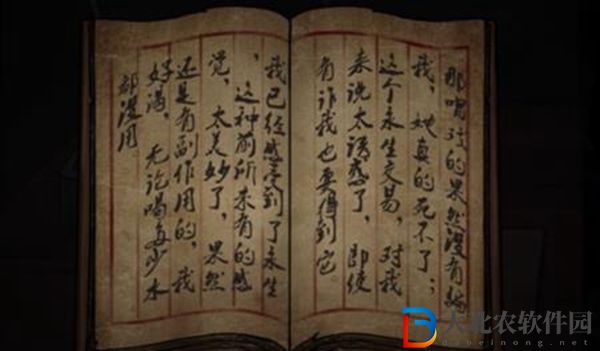 那唱戏的果然没有骗
我，她真的死不了；
这个永生交易，对我
来说太诱惑了，即使
有诈我也要得到它
我已经感受到了永生
，这种前所未有的感
觉，太美妙了，果然
还是有副作用的，我
好渴，无论喝多少水
都没用。
大北农软件园
dabeinong.com